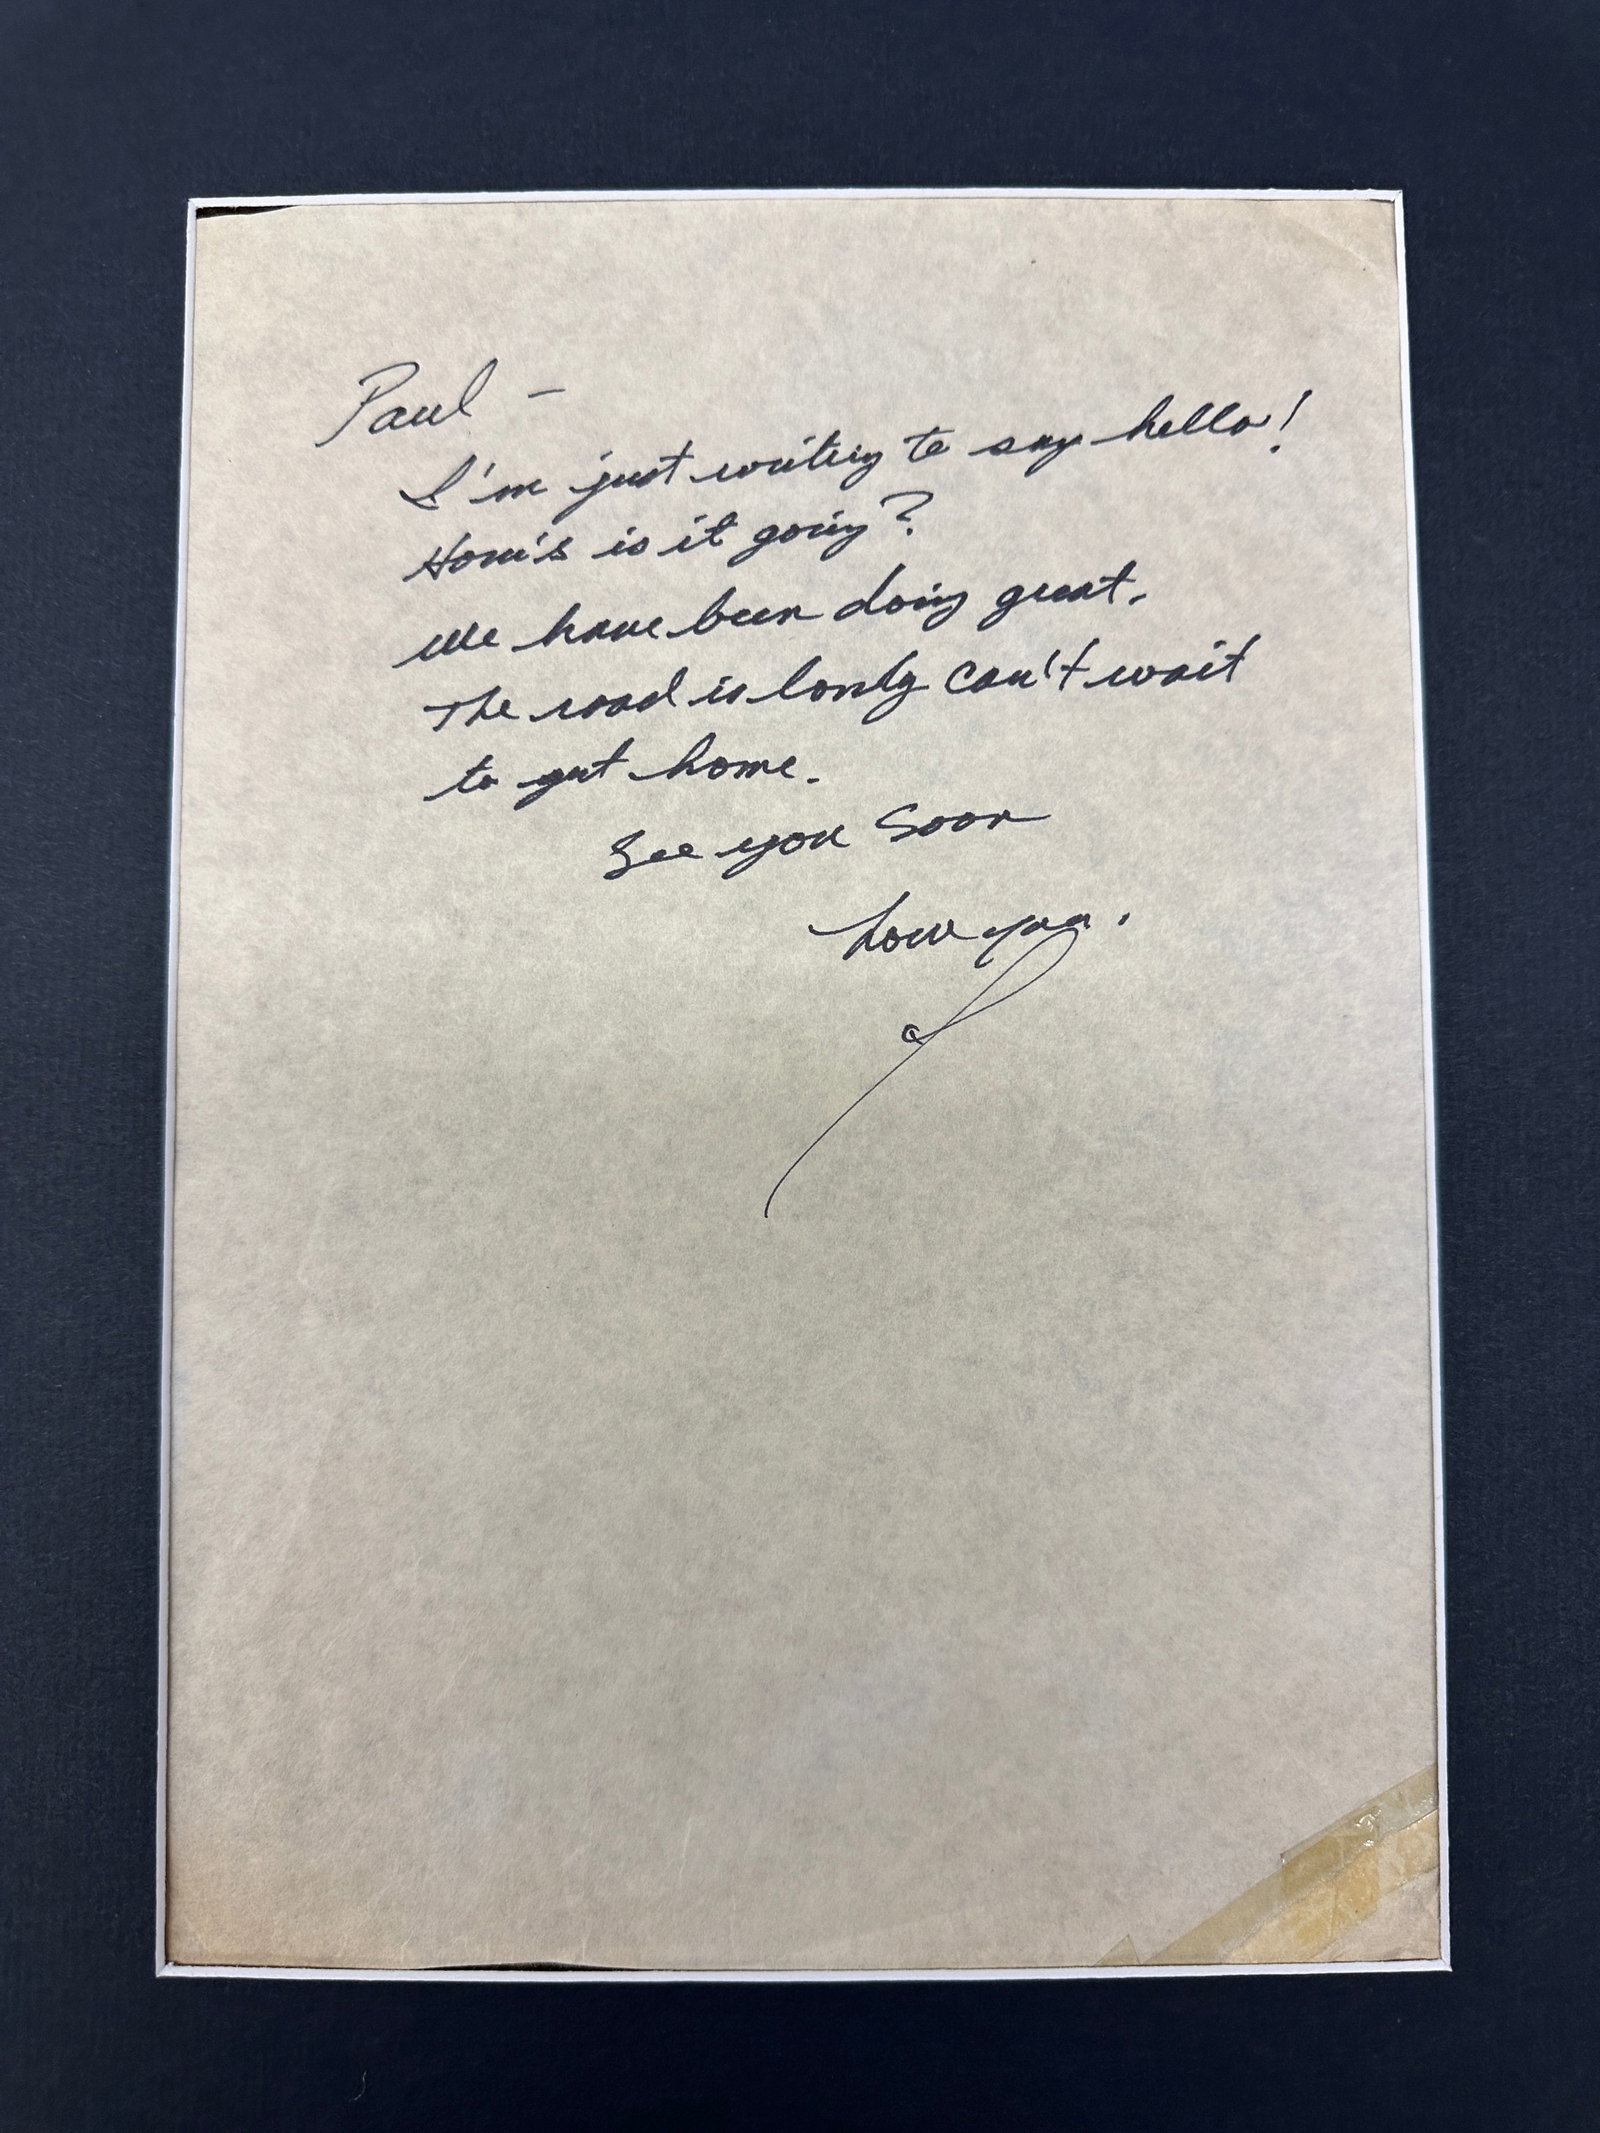 Paul -
I'm just writing to say hello!
How's is it going?
We have been doing great.
The road is lonly can't wait
to get home.
See you soon
Love you.